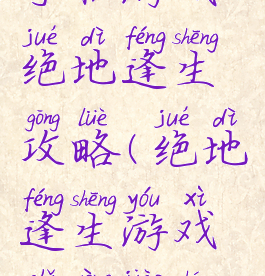 jué dì féng shēng
绝地逢生
gōng lüè jué dì
攻略(绝地
féng shēng yóu xì
逢生游戏